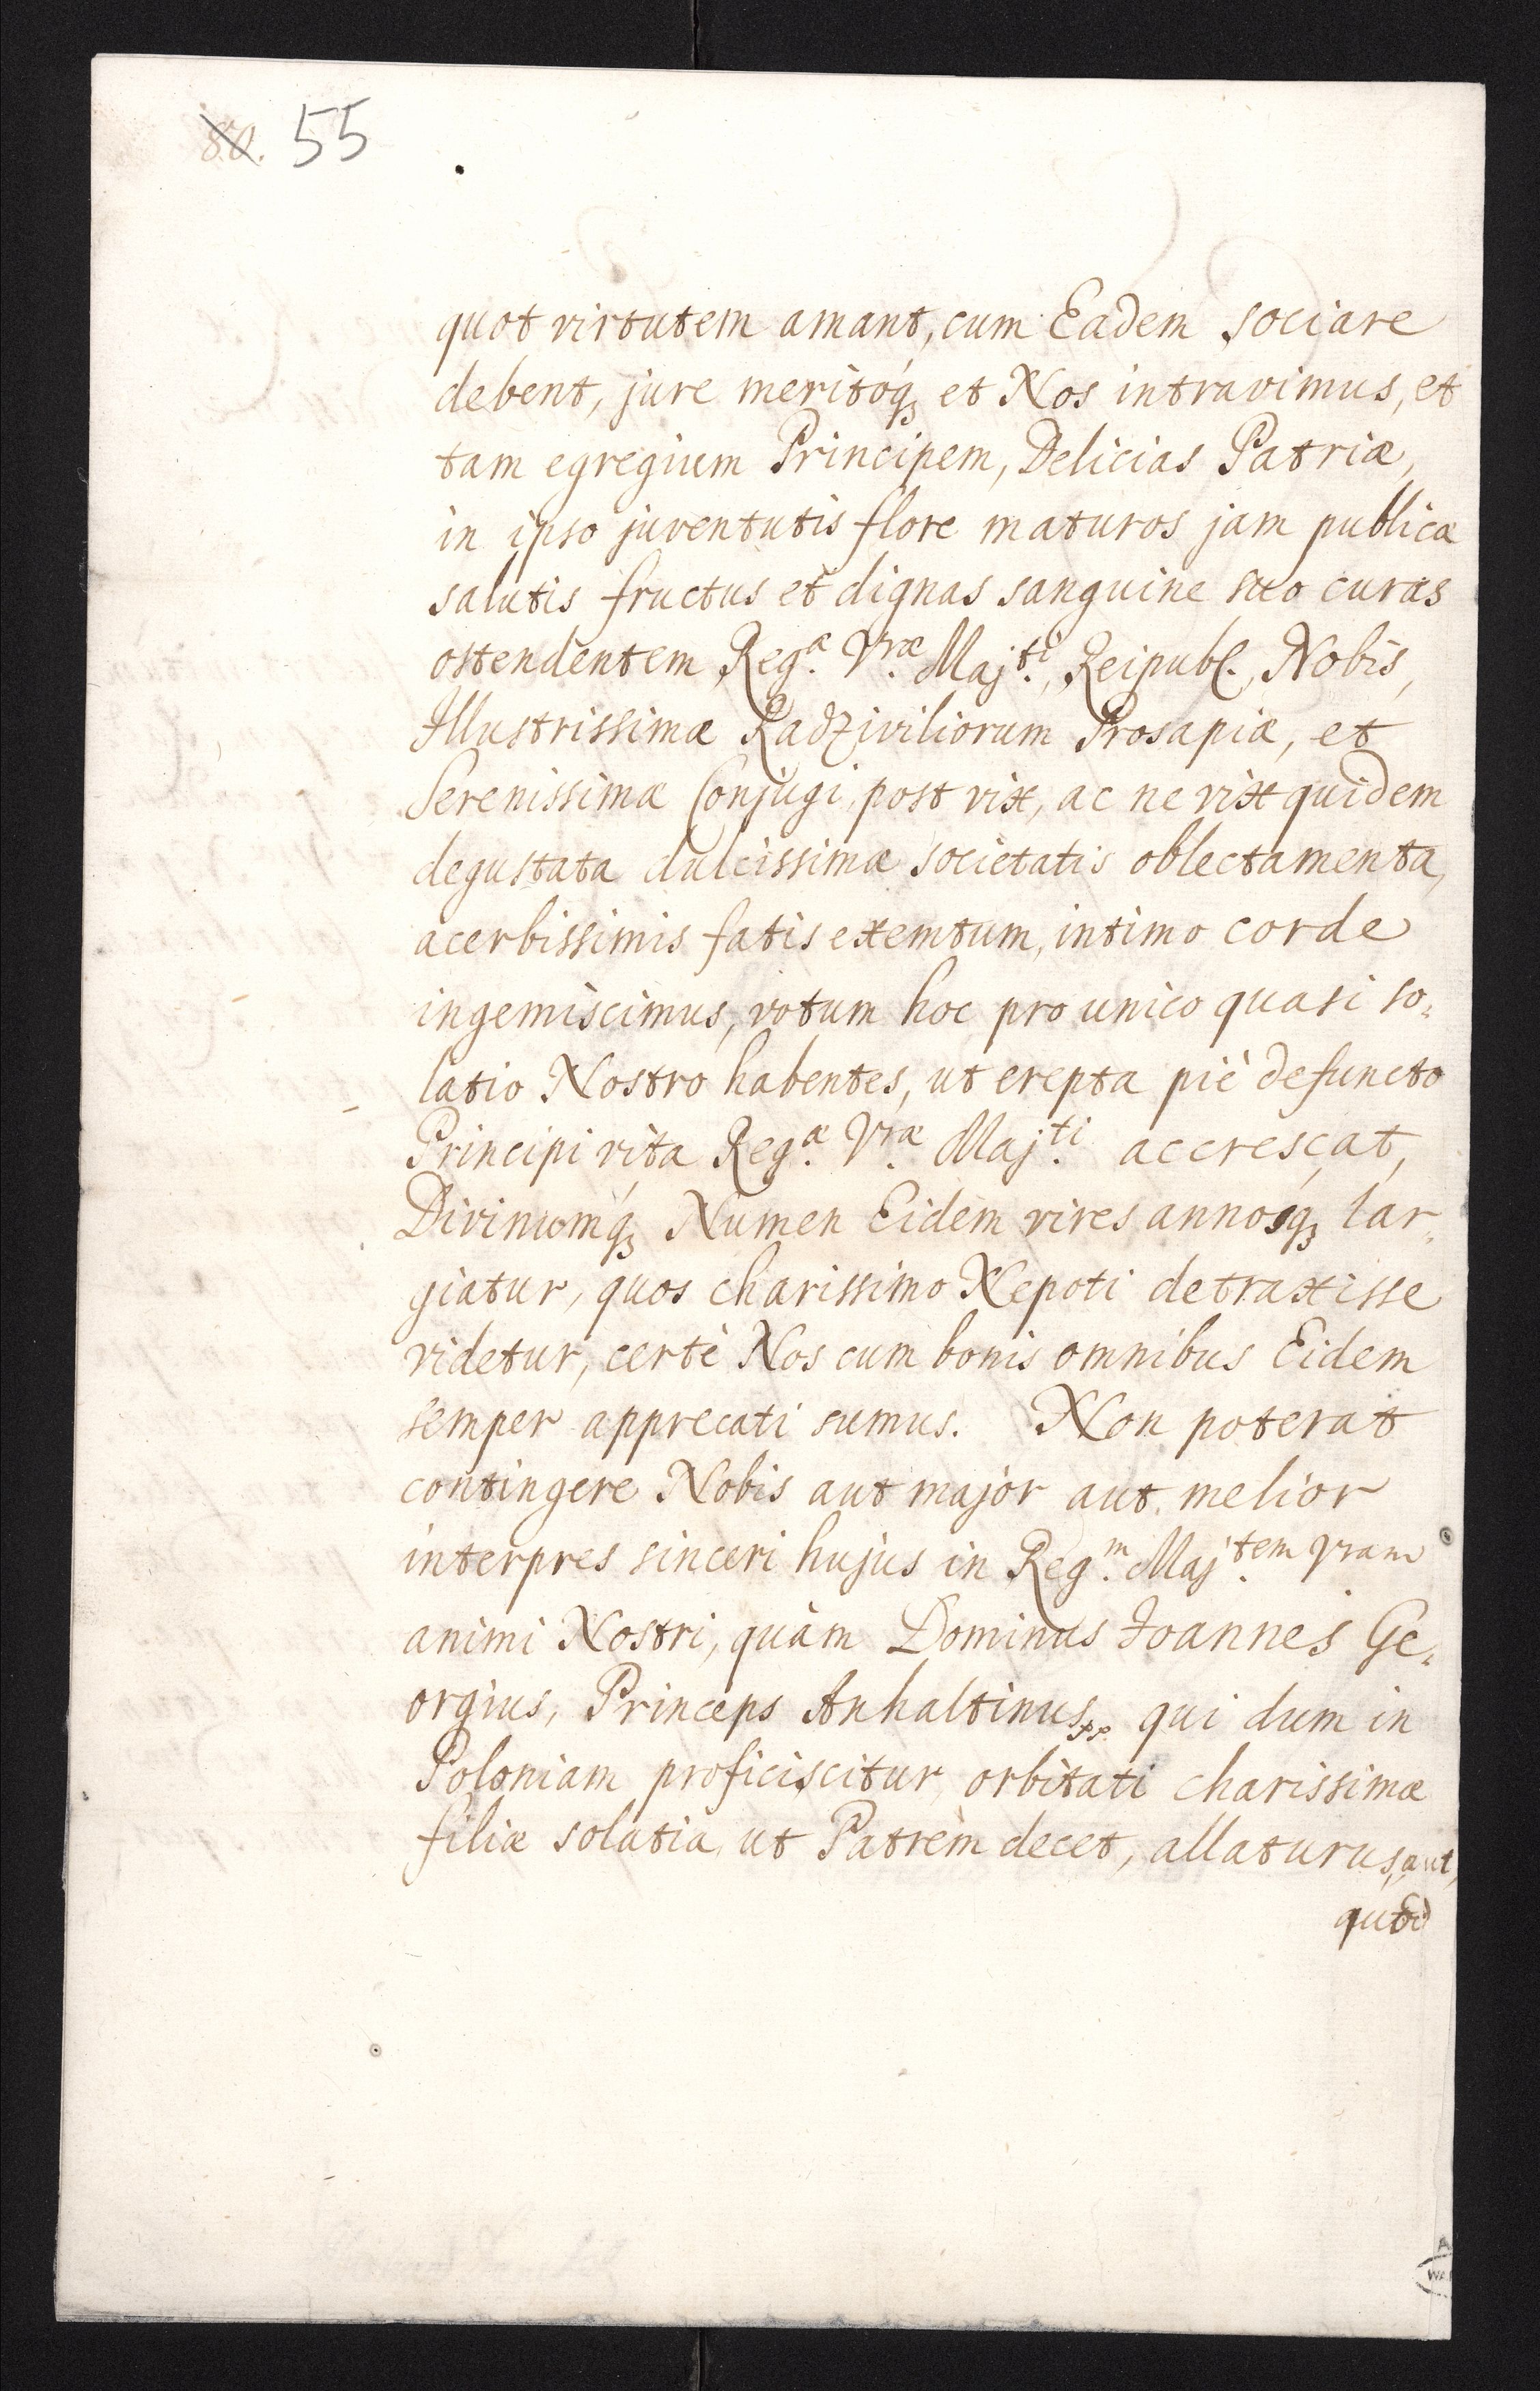 80. 55
quot virtutem amant, cum Eadem sociare
debent, jure meritóq; et Nos intravimus, et
tam egregium Principem, Delicias Patriæ,
in ipso juventutis flore maturos jam publicæ
salutis fructus et dignas sanguine suo curas
ostendentem Reg.æ V.ræ Maj.ti, Reipubl., Nobis,
Illustrissimæ Radziviliorum Prosapiæ, et
Serenissimæ Conjugi, post vix, ac ne vix quidem
degustata dulcissimæ societatis oblectamenta,
acerbissimis fatis exemtum, intimo corde
ingemiscimus, votum hoc pro unico quasi so„
latio Nostro habentes, ut erepta piè defuncto
Principi vita Reg.æ V.ræ Maj.ti accrescat,
Divinumq́; Numen Eidem vires annosq́; lar„
giatur, quos charissimo Nepoti detraxisse
videtur, certè Nos cum bonis omnibus Eidem
semper apprecati sumus. Non poterat
contingere Nobis aut major aut melior
interpres sinceri hujus in Reg.m Maj.tem Vram
animi Nostri, quàm Dominus Joannes Ge„
orgius, Princeps Anhaltinus qui dum in
Poloniam proficiscitur, orbitati charissimæ
filiæ solatia, ut Patrem decet, allaturus, aut,